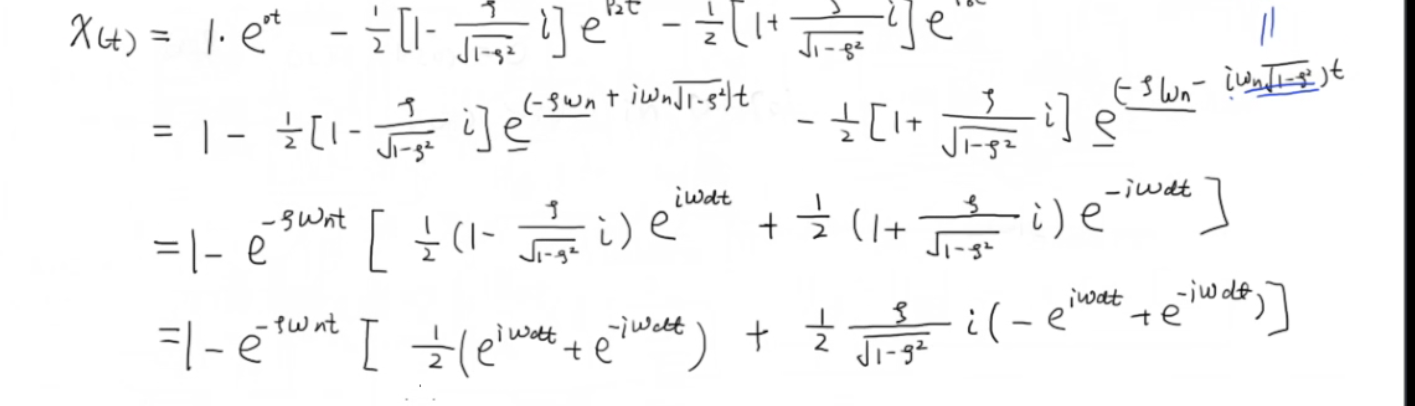 X(t) = 1·e^{0t} - 1/2[1 - ζ/√(1-ζ²) i]e^{P₂t} - 1/2[1 + ζ/√(1-ζ²) i]e
= 1 - 1/2[1 - ζ/√(1-ζ²) i]e^{(-ζωn + iωn√(1-ζ²))t} - 1/2[1 + ζ/√(1-ζ²) i]e^{(-ζωn - iωn√(1-ζ²))t}
= 1 - e^{-ζωnt}[1/2(1 - ζ/√(1-ζ²) i)e^{iωdt} + 1/2(1 + ζ/√(1-ζ²) i)e^{-iωdt}]
= 1 - e^{-ζωnt}[1/2(e^{iωdt} + e^{-iωdt}) + 1/2 ζ/√(1-ζ²) i(-e^{iωdt} + e^{-iωdt})]